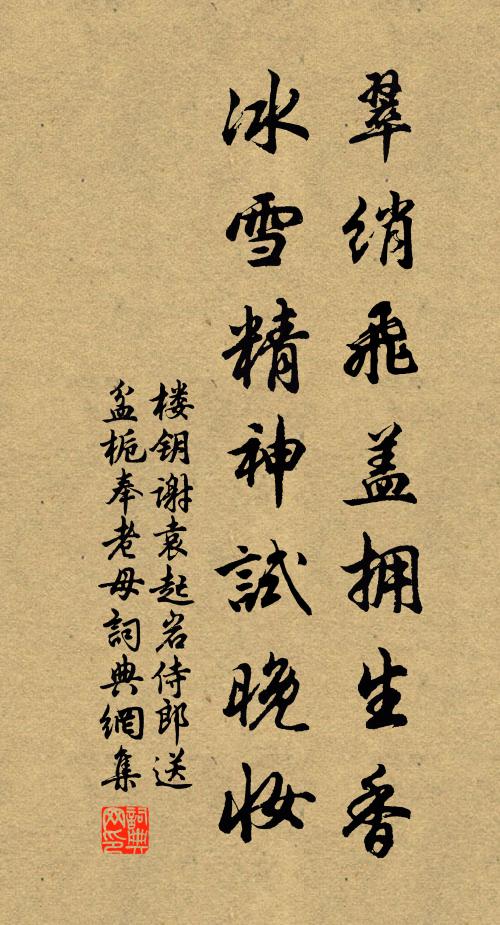 翠绡飛盖拥生香
冰雪精神試晚妆
楼钥谢袁起岩侍郎送
盆栀奉老母詞典網集
詞典网印